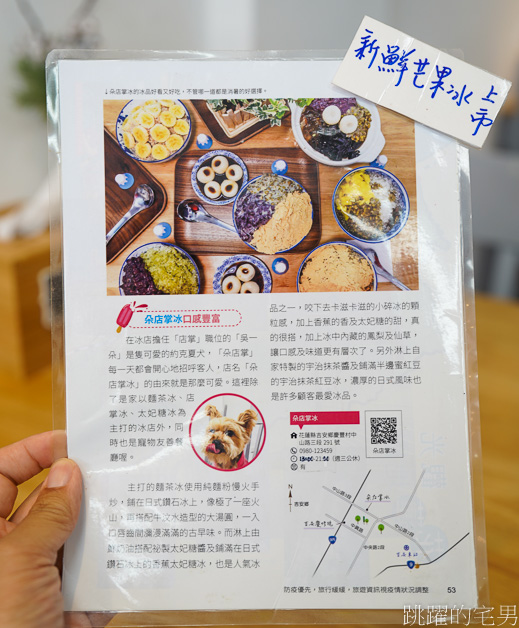 新鮮芒果冰上市
↓朵店掌冰的冰品好看又好吃,不管哪一道都是消暑的好選擇。
朵店掌冰口感豐富
在冰店擔任「店掌」職位的「吳一
朵」是隻可愛的約克夏犬,「朵店掌」
每一天都會開心地招呼客人,店名「朵
店掌冰」的由來就是那麼可愛。這裡除
了是家以麵茶冰、店
掌冰、太妃糖冰為
主打的冰店外,同
時也是寵物友善餐
廳喔。
主打的麵茶冰使用純麵粉慢火手
炒,鋪在日式鑽石冰上,像極了一座火
山,再搭配牛汶水造型的大湯圓,一入
口唇齒間瀰漫滿滿的古早味。而淋上由
鮮奶油搭配祕製太妃糖醬及鋪滿在日式
鑽石冰上的香蕉太妃糖冰,也是人氣冰
品之一,咬下去卡滋卡滋的小冰的顆
粒感,加上香蕉的香及太妃糖的甜,真
的很搭,加上冰中內藏的鳳梨及仙草,
讓口感及味道更有層次了。另外淋上自
家特製的宇治抹茶醬及鋪滿半邊蜜紅豆
的宇治抹茶紅豆冰,濃厚的日式風味也
是許多顧客最愛冰品。
朵店掌冰
花蓮縣吉安鄉慶豐村中
山路三段 291 號
0980-123459
(週三公休)
有
朵店掌冰
N
吉安鄉
中山路3段
朵店掌冰
吉安慶修院
中央路1段
吉安車站
防疫優先,旅行緩緩,旅遊資訊視疫情狀況調整
53
跳躍的宅男